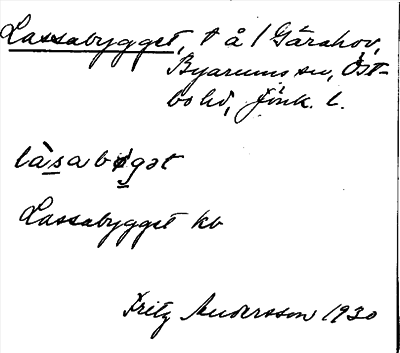 Lassabygget, t å 1 Gärahov,
Byarums sn, Öst-
bo hd, Jönk. l.
làsabøgət
Lassabygget kb
Fritz Andersson 1930